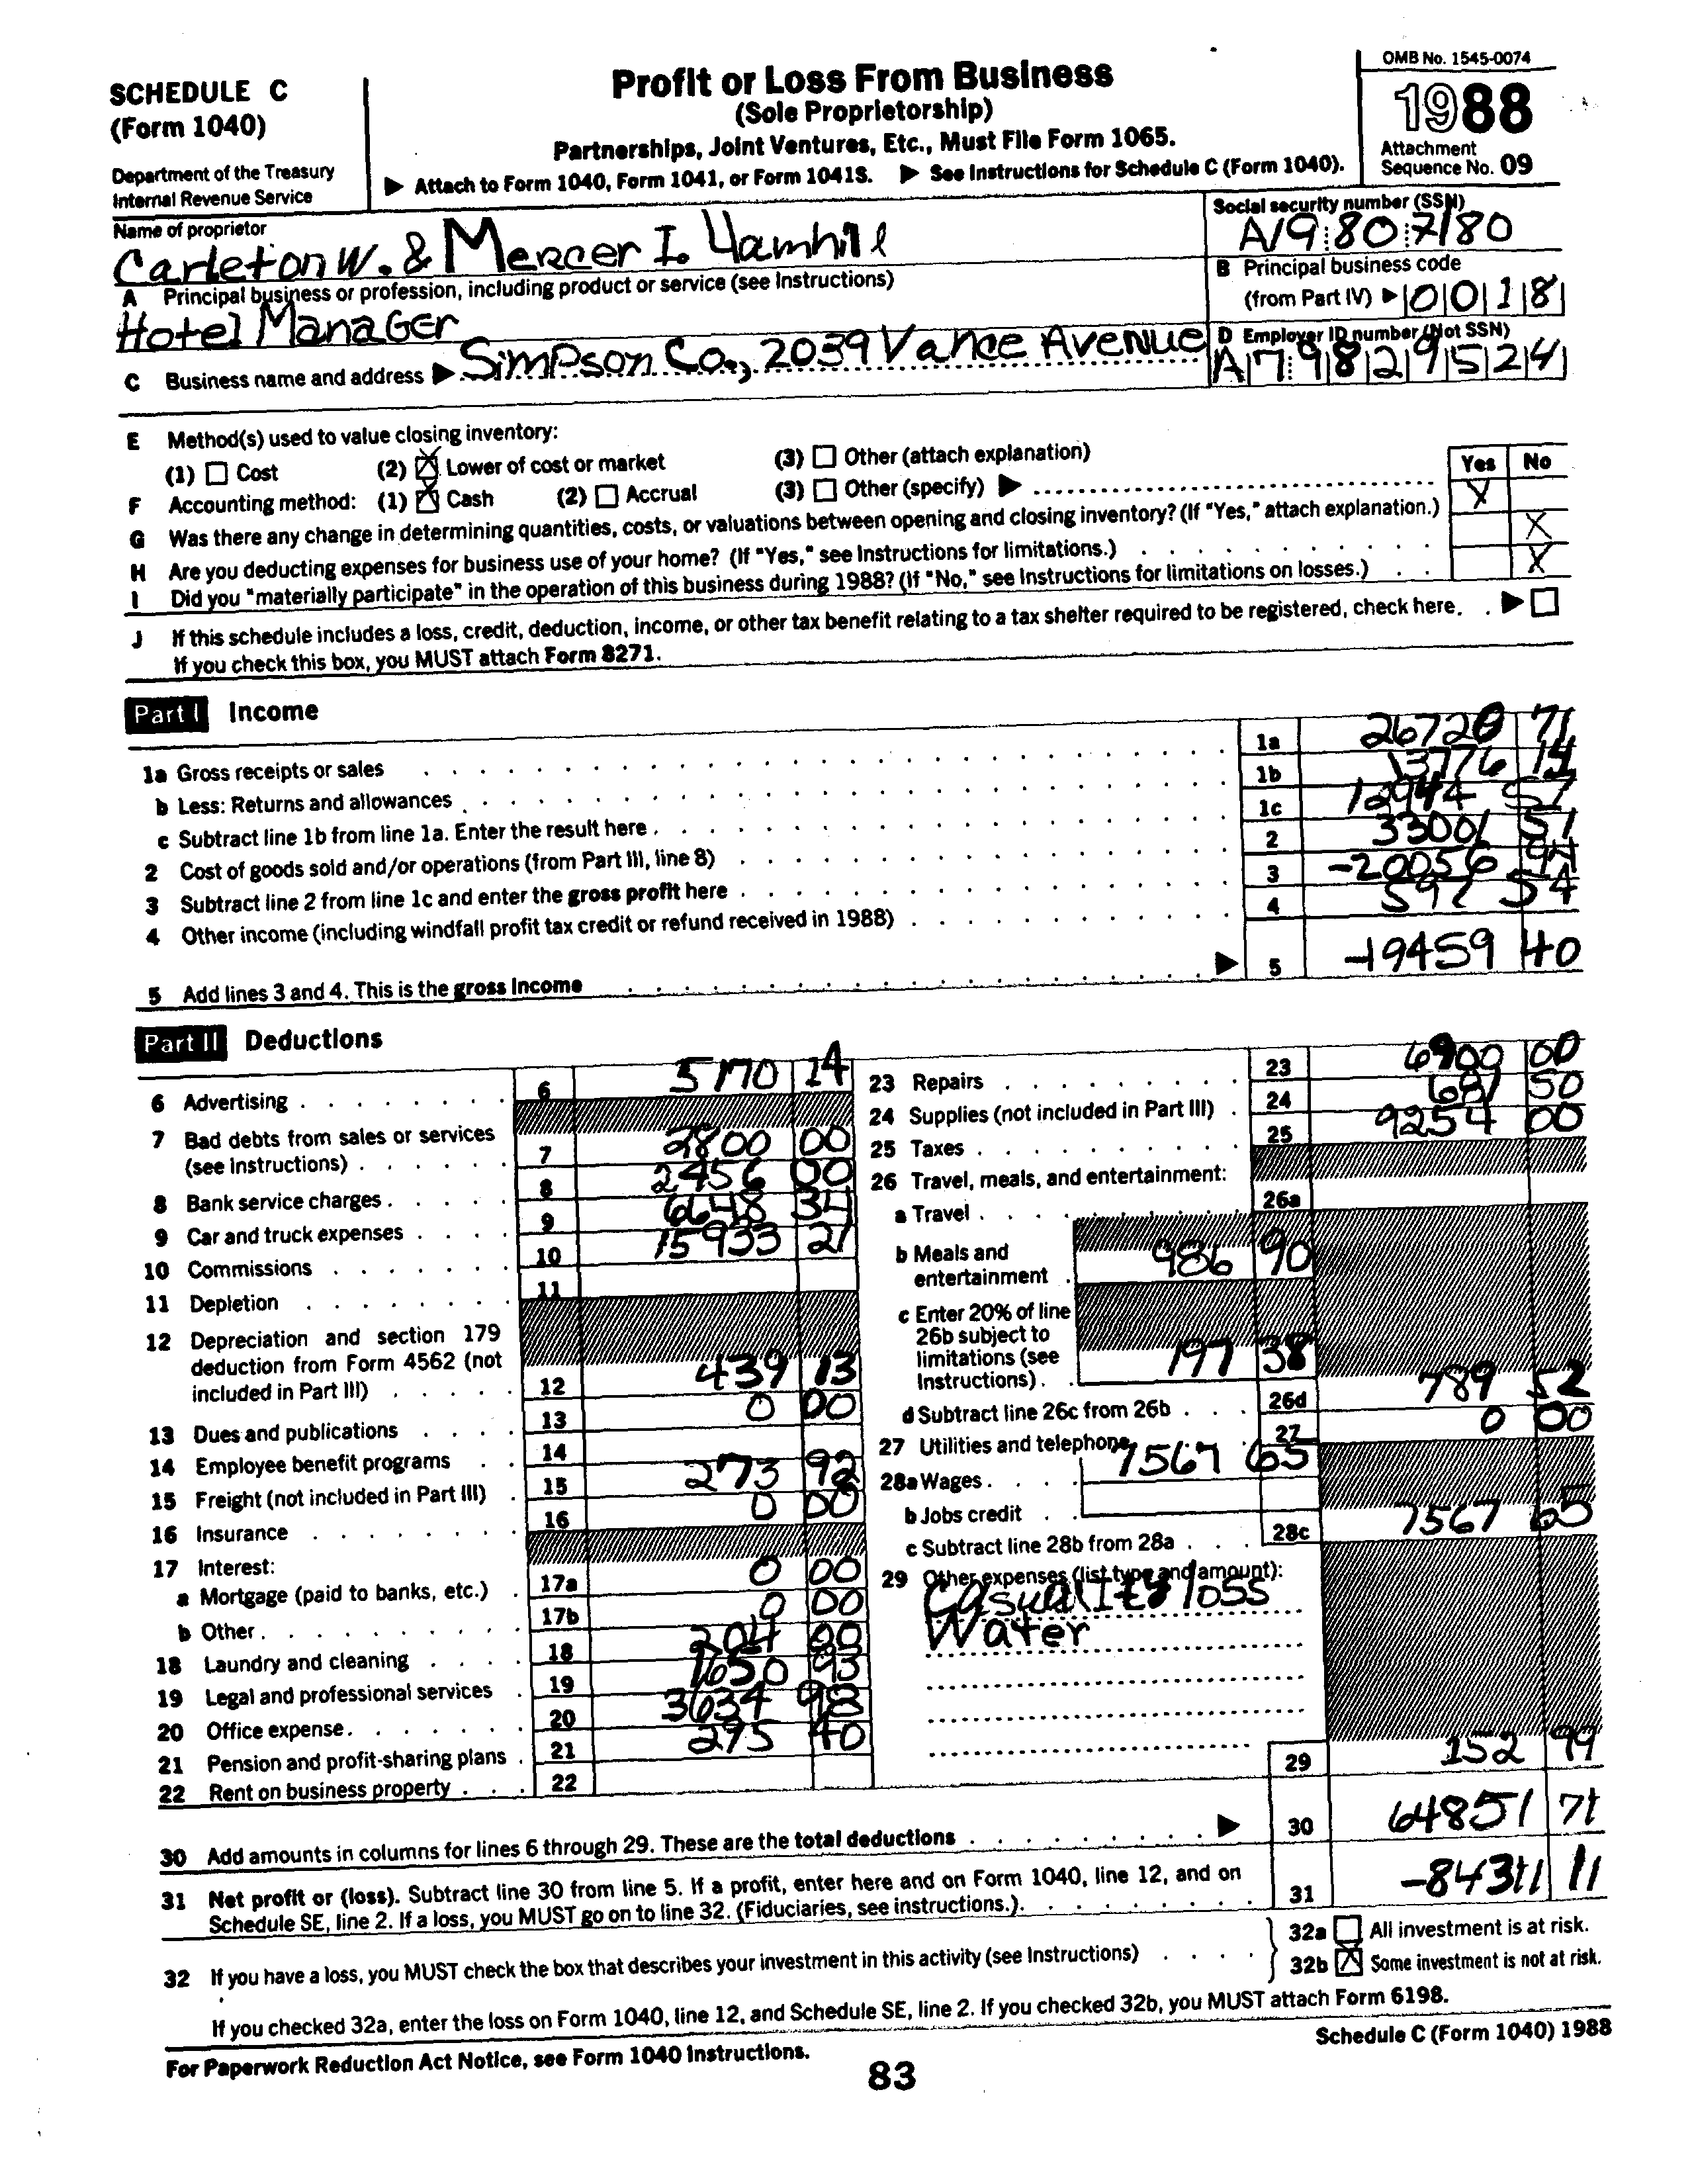 SCHEDULE C
(Form 1040)
Department of the Treasury
Internal Revenue Service
Profit or Loss From Business
(Sole Proprietorship)
Partnerships, Joint Ventures, Etc., Must File Form 1065.
▶ Attach to Form 1040, Form 1041, or Form 1041S. ▶ See Instructions for Schedule C (Form 1040).
OMB No. 1545-0074
1988
Attachment
Sequence No. 09
Name of proprietor
Carleton W. & Mercer I. Yamhill
Social security number (SSN)
A19:80:7180
A Principal business or profession, including product or service (see Instructions)
Hotel Manager
B Principal business code
(from Part IV) ▶ 0018
C Business name and address ▶ Simpson Co., 2039 Vance Avenue
D Employer ID number (Not SSN)
A79829524
E Method(s) used to value closing inventory:
(1) ☐ Cost (2) ☒ Lower of cost or market (3) ☐ Other (attach explanation)
F Accounting method: (1) ☒ Cash (2) ☐ Accrual (3) ☐ Other (specify) ▶
Yes No
G Was there any change in determining quantities, costs, or valuations between opening and closing inventory? (If "Yes," attach explanation.) X
H Are you deducting expenses for business use of your home? (If "Yes," see Instructions for limitations.) X
I Did you "materially participate" in the operation of this business during 1988? (If "No," see Instructions for limitations on losses.) X
J If this schedule includes a loss, credit, deduction, income, or other tax benefit relating to a tax shelter required to be registered, check here. ▶ ☐
If you check this box, you MUST attach Form 8271.
Part I Income
1a Gross receipts or sales 1a 26720 71
b Less: Returns and allowances 1b 13776 14
c Subtract line 1b from line 1a. Enter the result here 1c 12944 57
2 Cost of goods sold and/or operations (from Part III, line 8) 2 33001 51
3 Subtract line 2 from line 1c and enter the gross profit here 3 -20056 94
4 Other income (including windfall profit tax credit or refund received in 1988) 4 597 54
5 Add lines 3 and 4. This is the gross income ▶ 5 -19459 40
Part II Deductions
6 Advertising 6 5170 14
7 Bad debts from sales or services
(see Instructions) 7 2800 00
8 Bank service charges 8 2456 00
9 Car and truck expenses 9 6648 34
10 Commissions 10 15933 21
11 Depletion 11
12 Depreciation and section 179
deduction from Form 4562 (not
included in Part III) 12 439 13
13 Dues and publications 13 0 00
14 Employee benefit programs 14
15 Freight (not included in Part III) 15 273 92
16 Insurance 16 0 00
17 Interest:
a Mortgage (paid to banks, etc.) 17a 0 00
b Other 17b 0 00
18 Laundry and cleaning 18 204 00
19 Legal and professional services 19 1650 93
20 Office expense 20 3634 98
21 Pension and profit-sharing plans 21 295 40
22 Rent on business property 22
23 Repairs 23 6900 00
24 Supplies (not included in Part III) 24 681 50
25 Taxes 25 9254 00
26 Travel, meals, and entertainment:
a Travel 26a
b Meals and
entertainment 986 90
c Enter 20% of line
26b subject to
limitations (see
Instructions) 197 38
d Subtract line 26c from 26b 26d 789 52
27 Utilities and telephone 27 0 00
28a Wages 7567 65
b Jobs credit
c Subtract line 28b from 28a 28c 7567 65
29 Other expenses (list type and amount):
Casuality loss
Water
29 152 99
30 Add amounts in columns for lines 6 through 29. These are the total deductions ▶ 30 64851 71
31 Net profit or (loss). Subtract line 30 from line 5. If a profit, enter here and on Form 1040, line 12, and on
Schedule SE, line 2. If a loss, you MUST go on to line 32. (Fiduciaries, see instructions.) 31 -84311 11
32 If you have a loss, you MUST check the box that describes your investment in this activity (see Instructions)
32a ☐ All investment is at risk.
32b ☒ Some investment is not at risk.
If you checked 32a, enter the loss on Form 1040, line 12, and Schedule SE, line 2. If you checked 32b, you MUST attach Form 6198.
For Paperwork Reduction Act Notice, see Form 1040 Instructions.
Schedule C (Form 1040) 1988
83